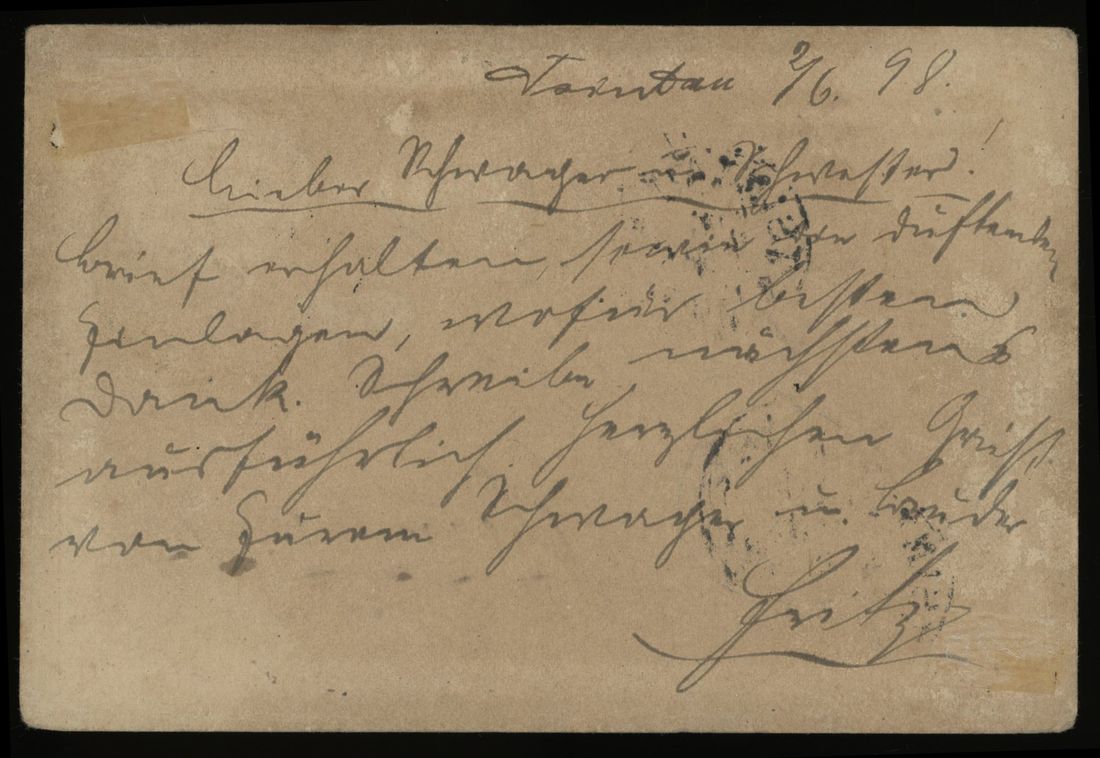 2/6. 98.
Lieber Schwager u. Schwester!
Brief erhalten, sowie den duftenden
Einlagen, wofür besten
Dank. Schreibe nächstens
ausführlich. Herzlichen Gruß
von Eurem Schwager u. Bruder
Fritz